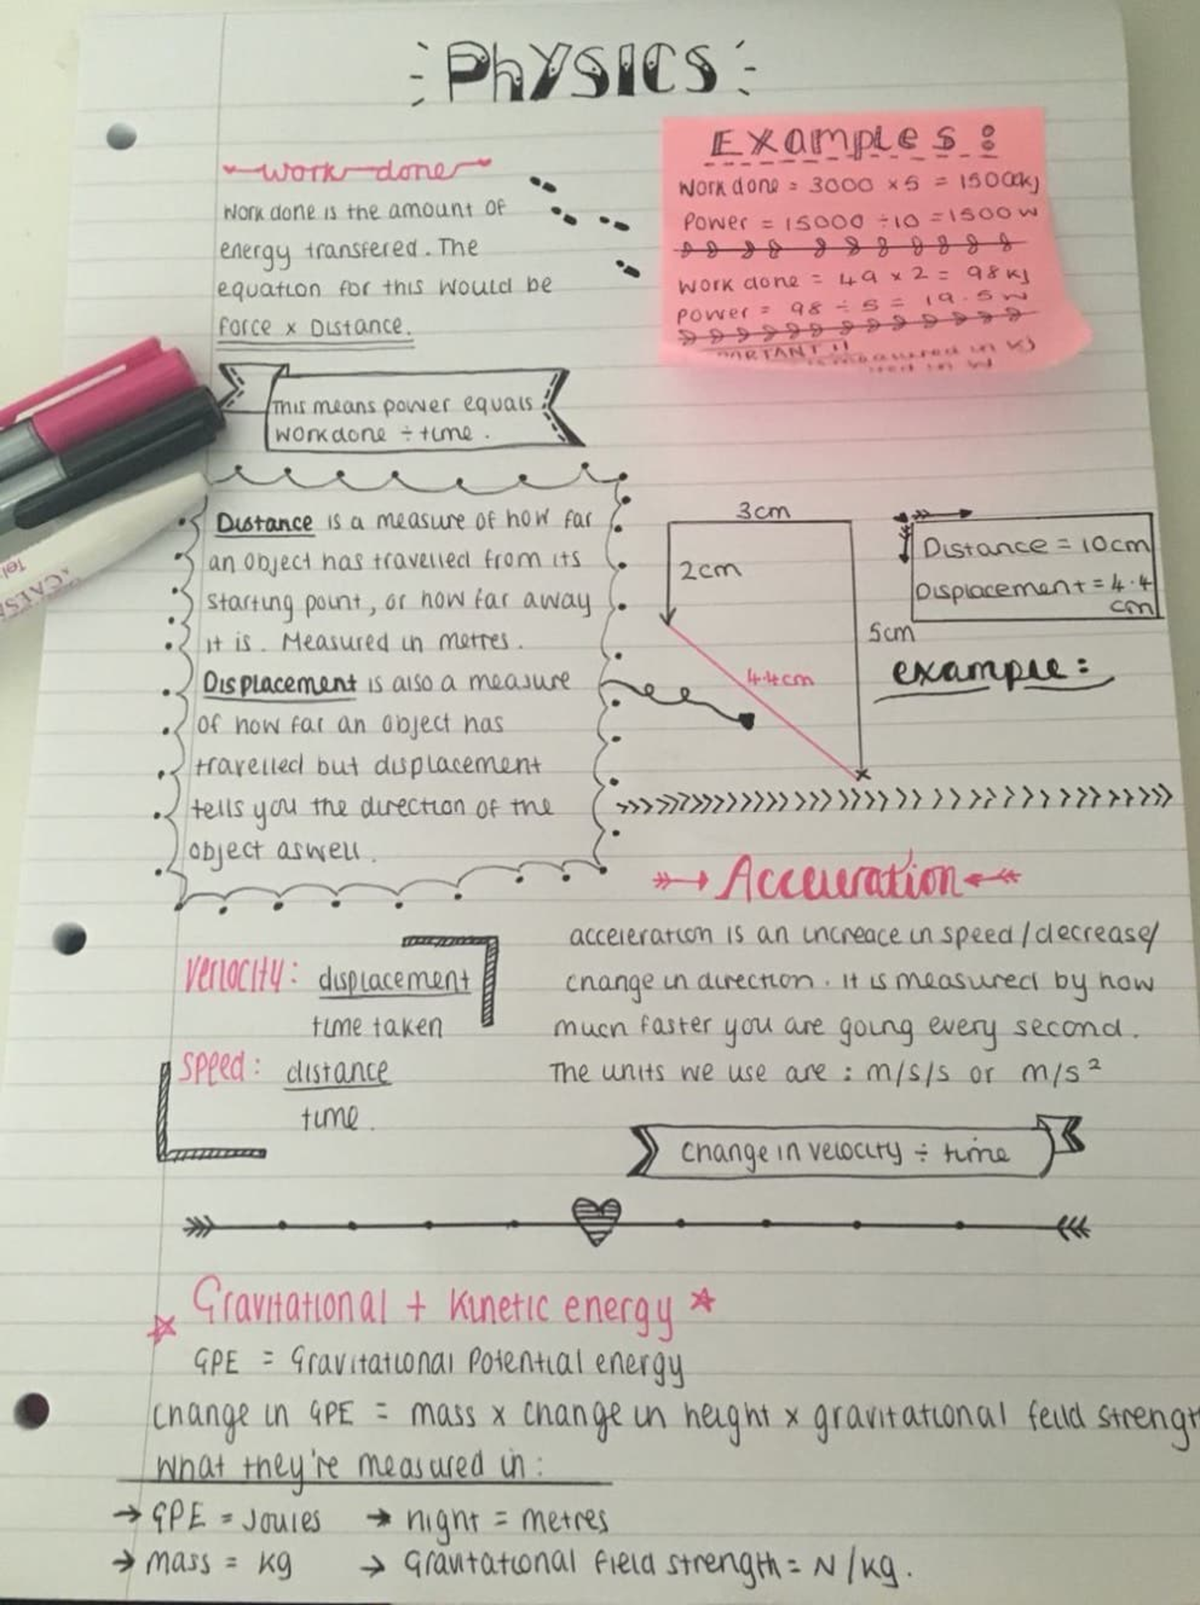 Physics
work done
Work done is the amount of
energy transfered. The
equation for this would be
force x Distance.
This means power equals
workdone ÷ time.
Examples:
Work done = 3000 x 5 = 15000kJ
Power = 15000 ÷ 10 = 1500 W
work done = 49 x 2 = 98 KJ
power = 98 ÷ 5 = 19.5 W
measured in KJ
in W
Distance is a measure of how far
an object has travelled from its
starting point, or how far away
it is. Measured in metres.
Displacement is also a measure
of how far an object has
travelled but displacement
tells you the direction of the
object aswell.
3cm
2cm
5cm
4.4cm
Distance = 10cm
Displacement = 4.4
cm
example:
Acceleration
acceleration is an increace in speed/decrease/
change in direction. It is measured by how
much faster you are going every second.
The units we use are : m/s/s or m/s²
change in velocity ÷ time
Verlocity: displacement
time taken
Speed: distance
time.
Gravitational + Kinetic energy
GPE = Gravitational Potential energy
change in GPE = mass x change in height x gravitational feild strengt
what they're measured in:
→ GPE = Joules → hight = metres
→ mass = kg → Gravitational field strength = N/kg.